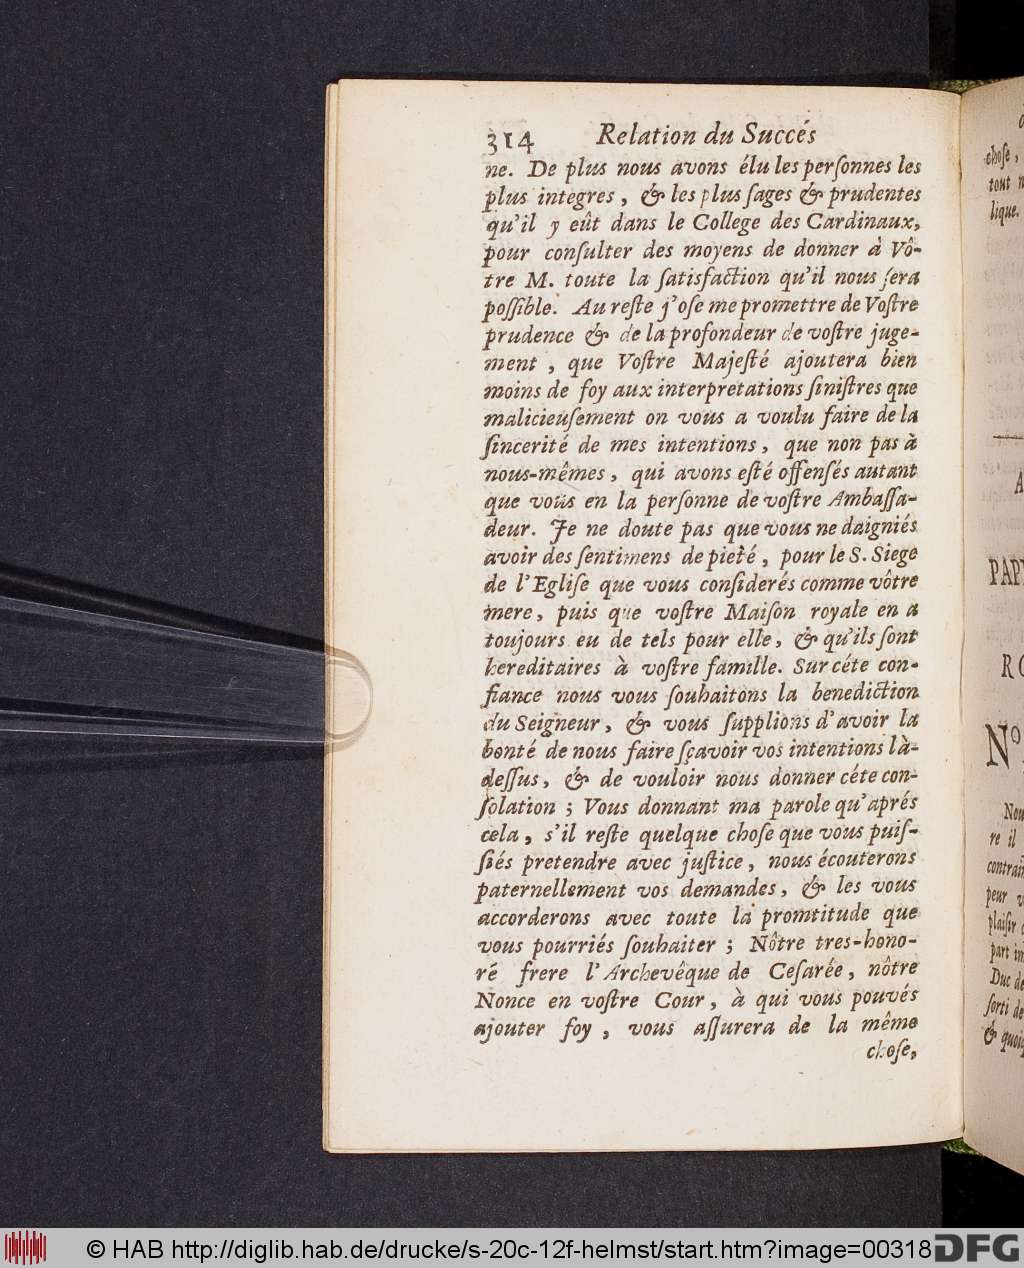 314 Relation du Succés
ne. De plus nous avons élu les perſonnes les
plus integres, & les plus ſages & prudentes
qu'il y eût dans le College des Cardinaux,
pour conſulter des moyens de donner à Vô-
tre M. toute la ſatisfaction qu'il nous ſera
poſſible. Au reſte j'oſe me promettre de Voſtre
prudence & de la profondeur de voſtre juge-
ment, que Voſtre Majeſté ajoutera bien
moins de foy aux interpretations ſiniſtres que
malicieuſement on vous a voulu faire de la
ſincerité de mes intentions, que non pas à
nous-mêmes, qui avons eſté offenſés autant
que vous en la perſonne de voſtre Ambaſſa-
deur. Je ne doute pas que vous ne daigniés
avoir des ſentimens de pieté, pour le S. Siege
de l'Egliſe que vous conſiderés comme vôtre
mere, puis que voſtre Maiſon royale en a
toujours eu de tels pour elle, & qu'ils ſont
hereditaires à voſtre famille. Sur céte con-
fiance nous vous ſouhaitons la benediction
du Seigneur, & vous ſupplions d'avoir la
bonté de nous faire ſçavoir vos intentions là-
deſſus, & de vouloir nous donner céte con-
ſolation; Vous donnant ma parole qu'aprés
cela, s'il reſte quelque choſe que vous puiſ-
ſiés pretendre avec juſtice, nous écouterons
paternellement vos demandes, & les vous
accorderons avec toute la promtitude que
vous pourriés ſouhaiter; Nôtre tres-hono-
ré frere l'Archevêque de Ceſarée, nôtre
Nonce en voſtre Cour, à qui vous pouvés
ajouter foy, vous aſſurera de la même
choſe,
choſe,
tout
lique.
PAP
N°
re il
peur
part
Duc de
ſorti de
© HAB http://diglib.hab.de/drucke/s-20c-12f-helmst/start.htm?image=00318
DFG